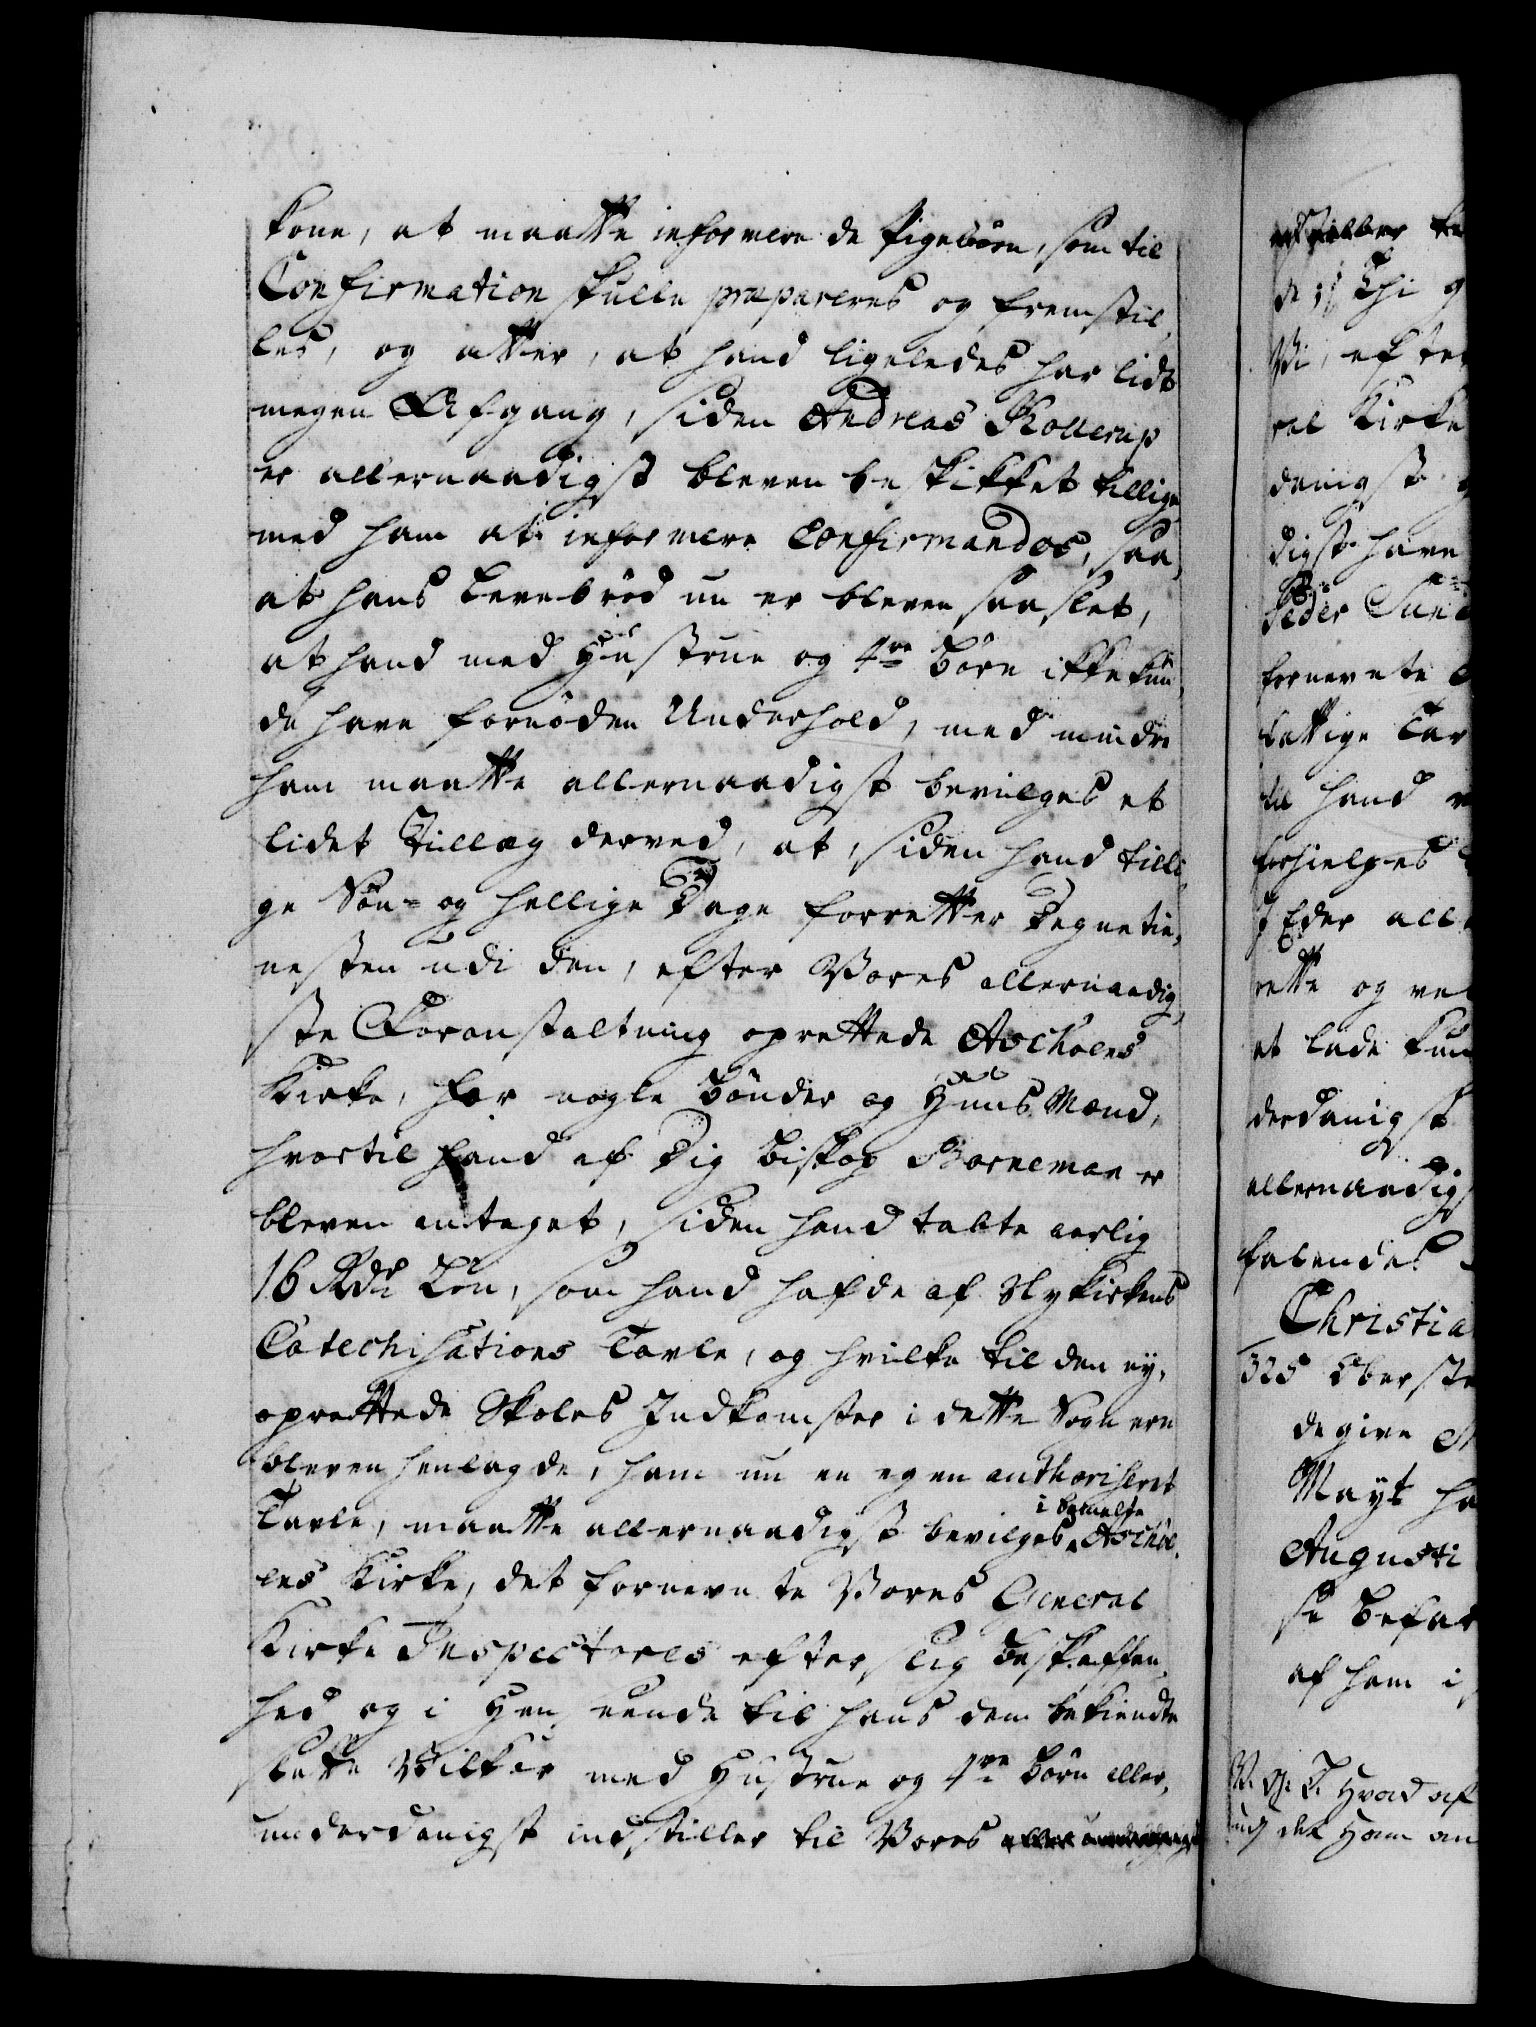 kone, at maatte informere de Pigebørn, som til
Confirmation skulle præpareres og fremstil,
les, og atter, at hand ligeledes har lidt
megen Afgang, siden Andreas Rollerup
er allernaadigst bleven beskikket tillige
med ham at informere Confirmandos, saa,
at hans Levebrød nu er bleven saa slet,
at hand med Hustrue og 4re Børn ikke kun,
de have fornøden Underhold, med mindre
ham maatte allernaadigst bevilges et
lidet Tillæg derved, at, siden hand tilli,
ge Søn- og hellige Dage forretter Degnetie,
nesten udi den, efter Vores allernaadig,
ste Foranstaltning oprettede Ascholes
Kirke, for nogle Bønder og Huus Mænd,
hvortil hand af Dig Biskop Borneman er
bleven antaget, siden hand tabte aarlig
16 Rdr Løn, som hand hafde af Nykirkens
Catechisations Tavle, og hvilke til den ny,
oprettede Skoles Indkomster i dette Sogn ere
bleven henlagde, ham nu en egen authoriseret
Tavle, maatte allernaadigst bevilges i bemelte Aschol,
les Kirke, det fornevnte Vores General
Kirke Inspectores efter slig Beskaffen,
hed og i Hen seende til hans dem bekiendte
slette Vilkor med Hustrue og 4re Børn aller,
underdanigst indstiller til Vores
de
Vi, efter
ral Kirke
danigst
digst have
Peder
fornevnte
fattige
hand
forhielpes
Eder all
rette og
at lade
derdanigst
allernaadigst
falendes
Christia
325 Oberste
degive
Mayt
Augusti
se Befal
af ham i
Hvad af
det Ham an